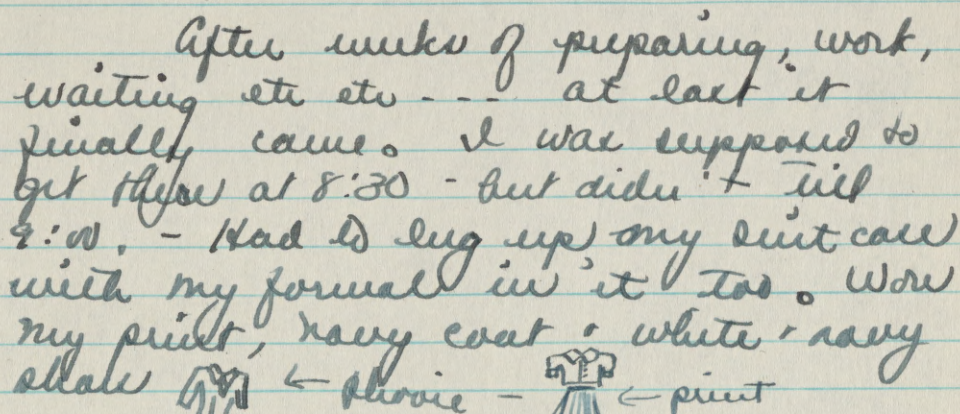 After weeks of preparing, work,
waiting etc etc - - - at last it
finally came. I was supposed to
get there at 8:30 - but didn't till
9:00. - Had to lug up my suit case
with my formal in it too. Wore
my print, navy coat + white + navy
shoes ← - ← print